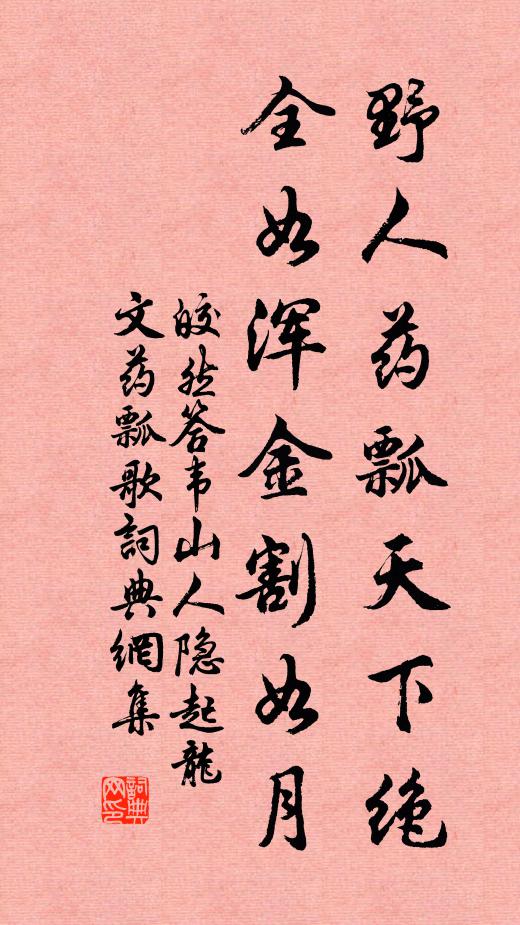 野人药瓢天下绝
全如浑金割如月
皎然答韦山人隐起龍
文药瓢歌詞典網集
詞典
网印